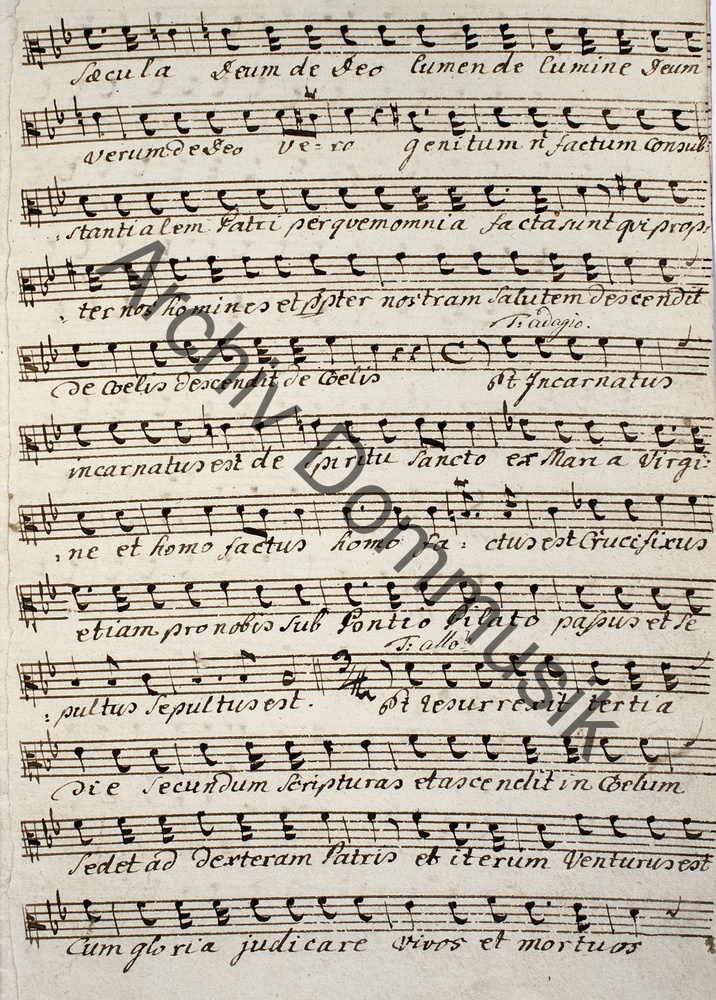 sæcula Deum de Deo lumen de lumine Deum
verum de Deo ve=ro genitum n̄ factum Consub:
:stantialem Patri per quem omnia facta sunt qui prop:
:ter nos homines et ppter nostram salutem descendit
T: adagio.
De Cœlis descendit de Cœlis Et Incarnatus
incarnatus est de spiritu sancto ex Maria Virgi:
:ne et homo factus homo fa: ctus est Crucifixus
etiam pro nobis sub Pontio Pilato passus et se
T: allo:
:pultus sepultus est. Et resurrexit tertia
Die secundum scripturas et ascendit in Cœlum
sedet ad dexteram Patris et iterum Venturus est
Cum gloria judicare vivos et mortuos
Archiv Dommusik